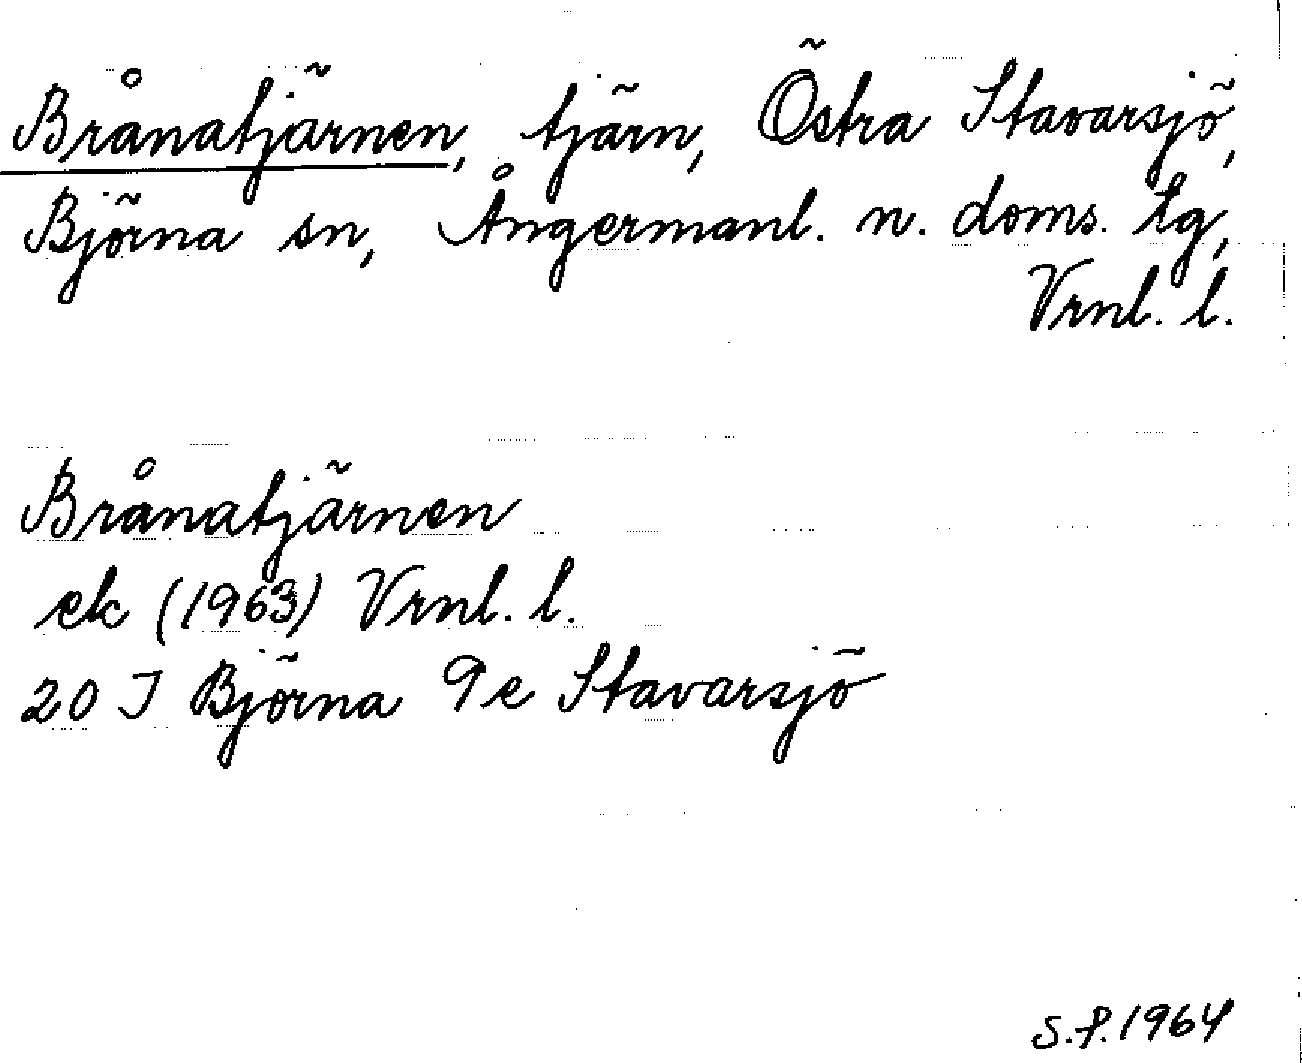 Brånatjärnen, tjärn, Östra Stavarsjö,
Björna sn, Ångermanl. n. doms. tg,
Vrnl. l.
Brånatjärnen
ek (1963) Vrnl. l.
20 I Björna 9e Stavarsjö
S.P. 1964